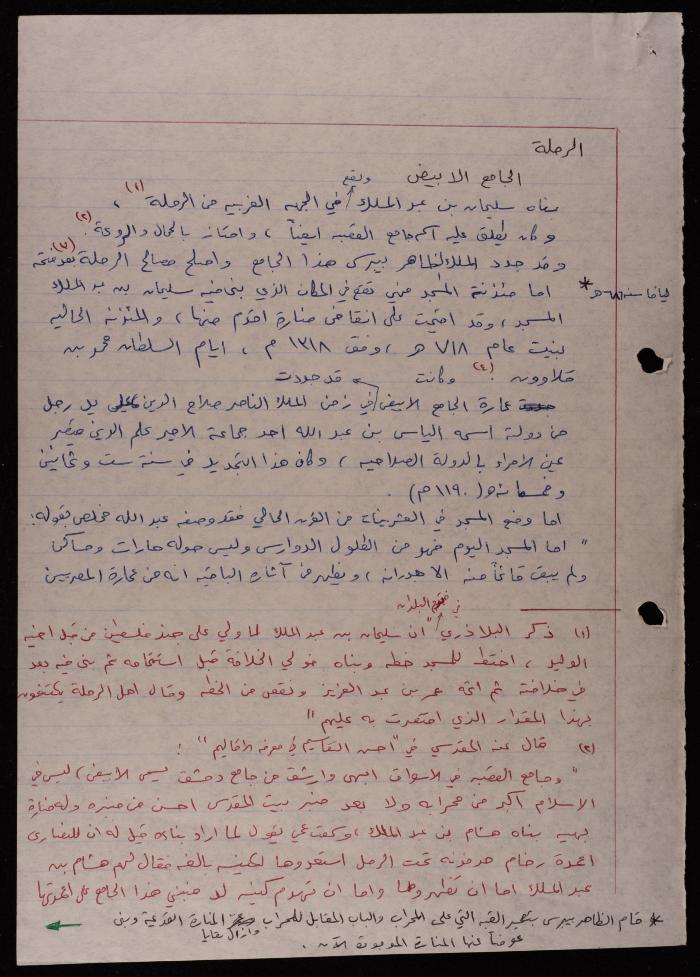 الرملة
الجامع الابيض
بناه سليمان بن عبد الملك ويقع في الجهه الغربيه من الرملة (١) ،
وكان يطلق عليه اسم جامع القصبه ايضاً ، وامتاز بالجمال والروعة (٢) .
وقد جدد الملك الظاهر بيبرس هذا الجامع واصلح مصالح الرملة بعد فتحه
ليافا سنة ٦٦٦ هـ *
اما مئذنة المسجد فهي تقع في المكان الذي بنى فيه سليمان بن عبد الملك
المسجد ، وقد اقيمت على انقاض منارة اقدم منها ، والمئذنه الحاليه
بنيت عام ٧١٨ هـ ، وفق ١٣١٨ م ، ايام السلطان محمد بن
قلاوون . (٤) وكانت قد جددت
عمارة الجامع الابيض في زمن الملك الناصر صلاح الدين على يد رجل
من دولة اسمه الياس بن عبد الله احد جماعة الامير علم الدين قيصر
عين الامراء بالدولة الصلاحيه ، وكان هذا التجديد في سنة ست وثمانين
وخمسمائة هـ ( ١١٩٠ م ) .
اما وضع المسجد في العشرينات من القرن الحالي فقد وصفه عبد الله مخلص بقوله :
" اما المسجد اليوم فهو من الطلول الدوارس وليس حوله حارات ومساكن
ولم يبق قائماً منه الا جدرانه ، ويظهر من آثاره الباقيه انه من عمارة المصريين
(١) ذكر البلاذري في فتوح البلدان " ان سليمان بن عبد الملك لما ولي على جند فلسطين من قبل اخيه
الوليد ، اختط للمسجد خطه وبناه فولي الخلافة قبل استتمامه ثم بنى فيه بعد
في خلافته ثم اتمه عمر بن عبد العزيز ونقص من الخطه وقال اهل الرملة يكتفون
بهذا المقدار الذي اقتصرت به عليهم "
(٢) قال عنه المقدسي في " احسن التقاسيم في معرفة الاقاليم " :
" وجامع القصبه في الاسواق ابهى وارشق من جامع دمشق يسمى الابيض ، ليس في
الاسلام اكبر من محرابه ولا بعد منبر بيت المقدس احسن من منبره وله منارة
بهيه بناه هشام بن عبد الملك ، وسمعت عمي يقول لما اراد بناءه قيل له ان للنصارى
اعمدة رخام مدفونه تحت الرمل استعدوها لكنيسه بالعه فقال لهم هشام بن
عبد الملك اما ان تظهروها واما ان نهدم كنيسه لد فنبني هذا الجامع على اعمدتها
* قام الظاهر بيبرس بتعمير القبه التي على المحراب والباب المقابل للمحراب وازال بقايا المنارة القديمة وبنى
عوضاً عنها المنارة الموجودة الآن .